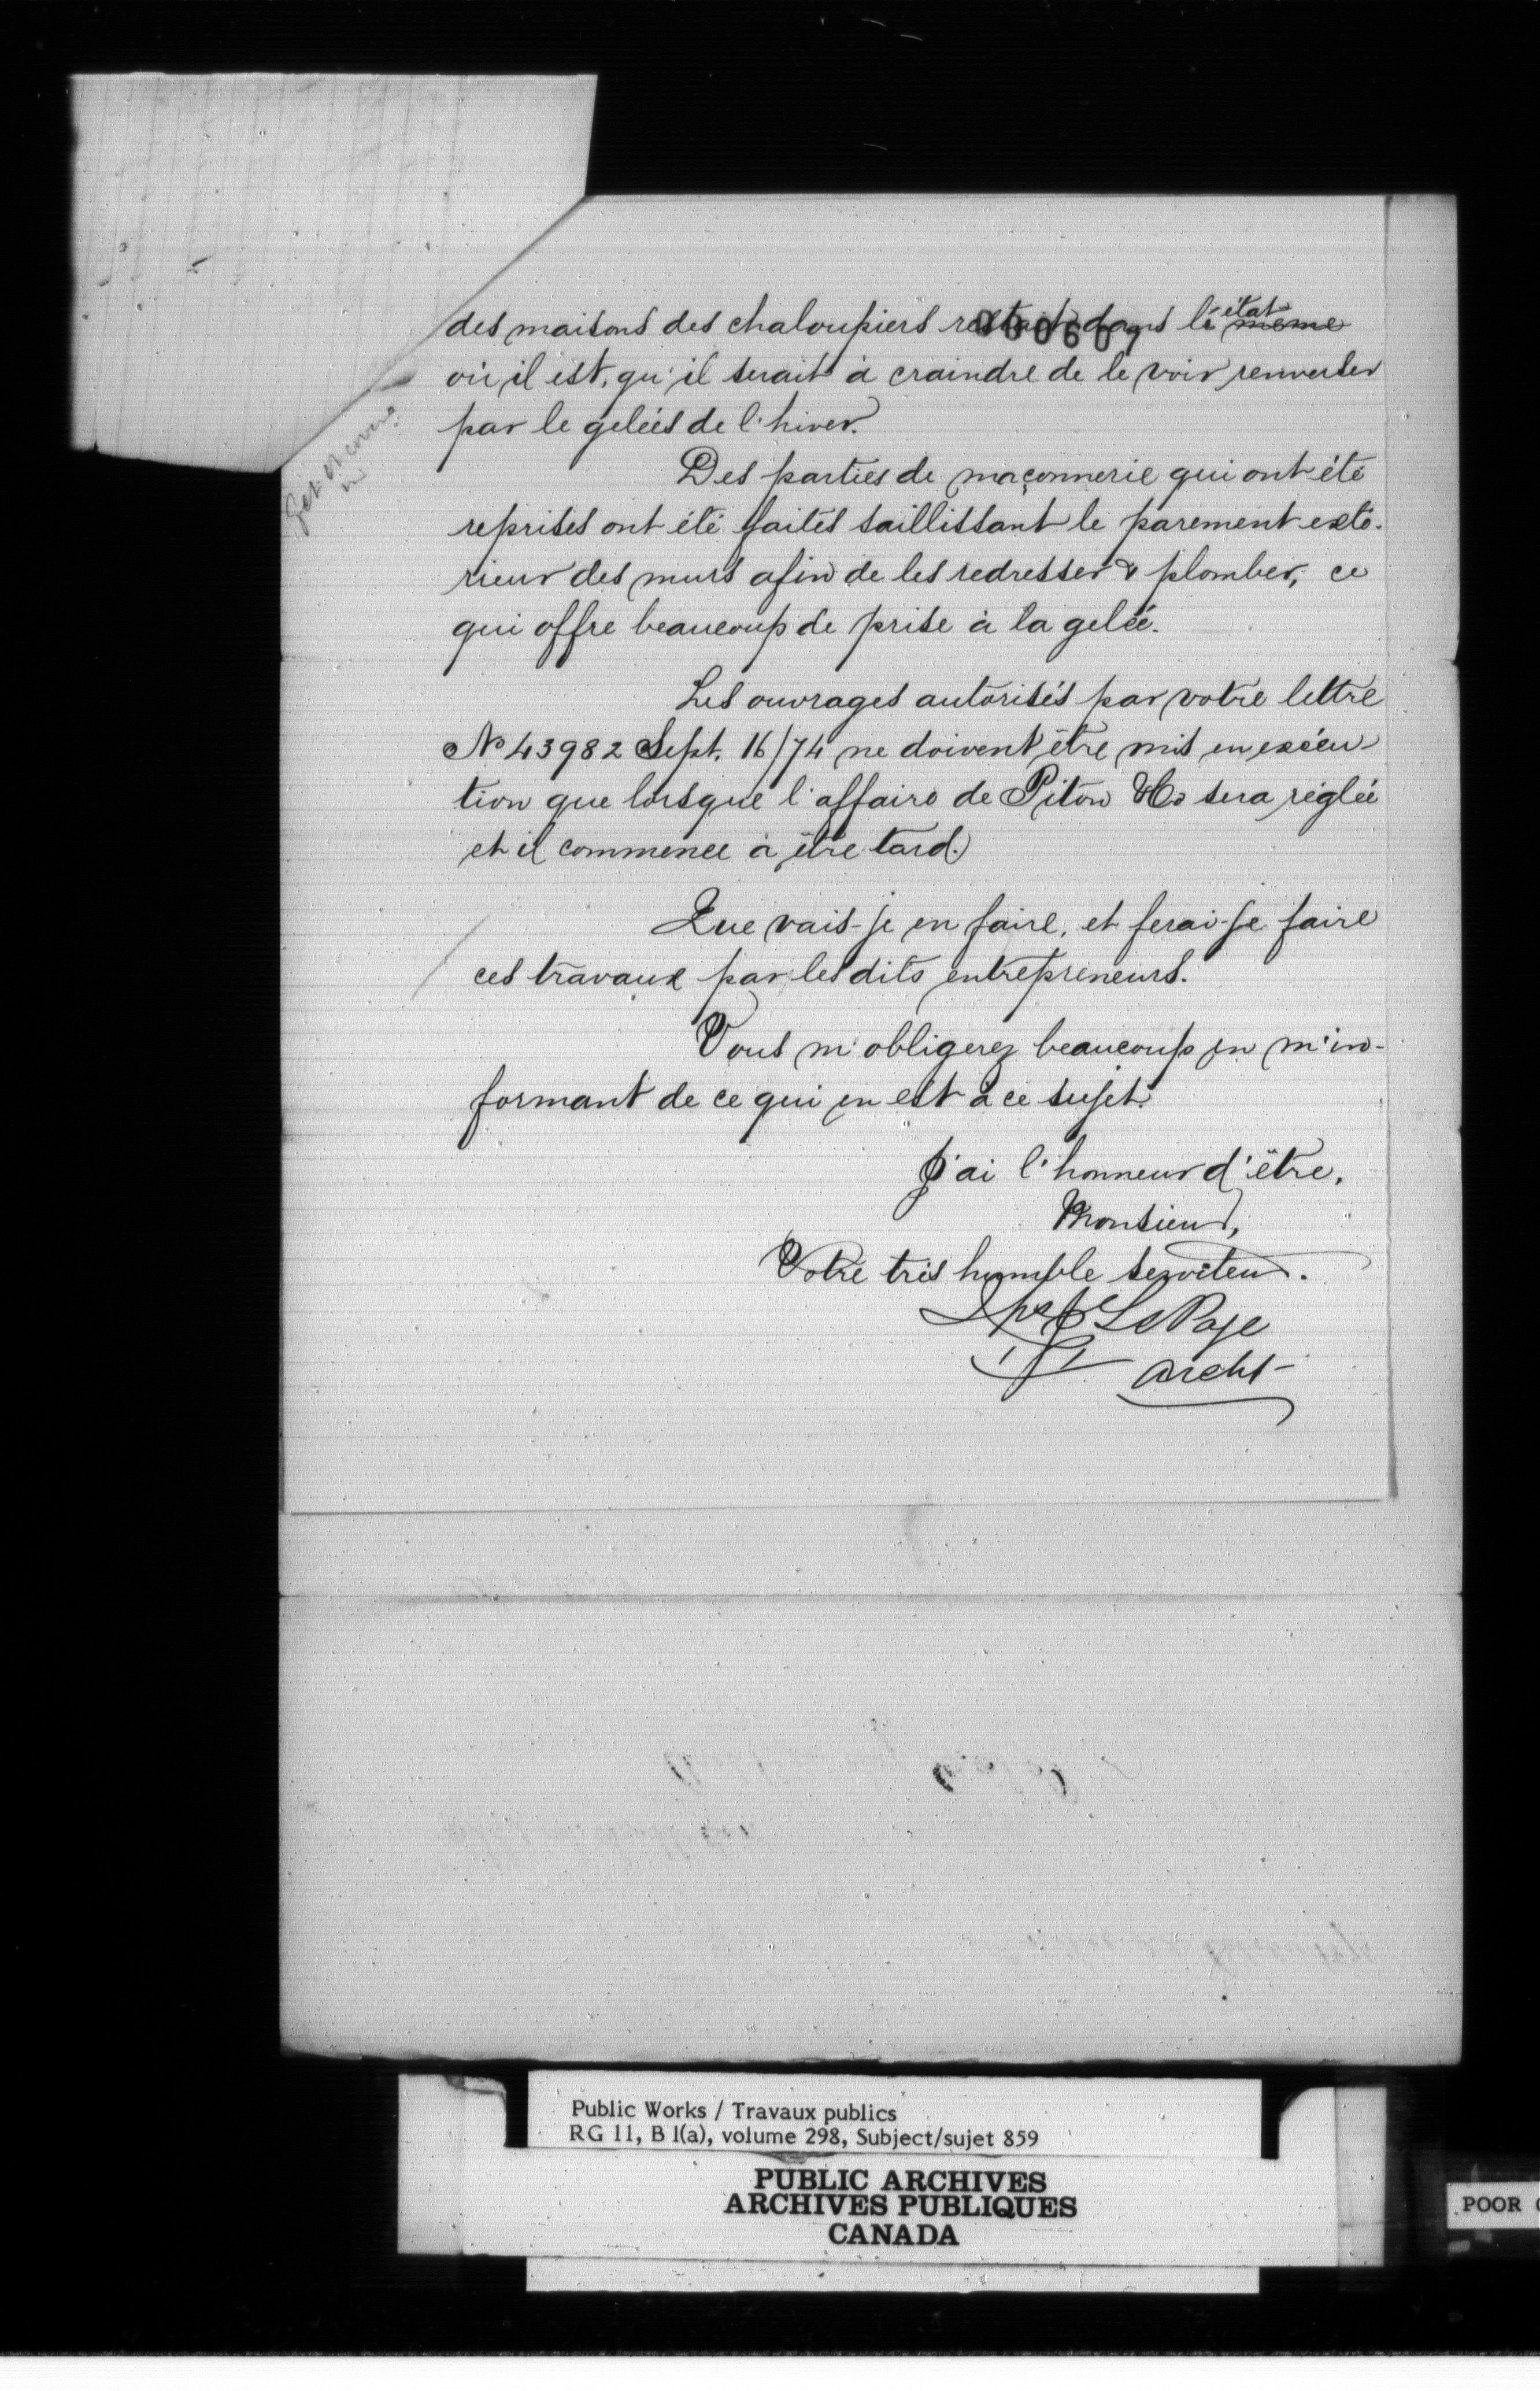 des maisons des chaloupiers restait dans l'état même
000607
où il est, qu'il serait à craindre de le voir renverser
par le gelées de l'hiver.
Des parties de maçonnerie qui ont été
reprises ont été faites saillissant le parement exté-
rieur des murs afin de les redresser & plomber, ce
qui offre beaucoup de prise à la gelée.
Les ouvrages autorisés par votre lettre
No 43982 Sept. 16/74 ne doivent être mis en exécu-
tion que lorsque l'affaire de Piton & Co sera réglée
et il commence à être tard.
Que vais-je en faire, et ferai-je faire
ces travaux par les dits entrepreneurs.
Vous m'obligerez beaucoup en m'in-
formant de ce qui en est à ce sujet.
J'ai l'honneur d'être,
Monsieur,
Votre très humble serviteur.
LePage
Archt
Public Works / Travaux publics
RG 11, B 1(a), volume 298, Subject/sujet 859
PUBLIC ARCHIVES
ARCHIVES PUBLIQUES
CANADA
POOR